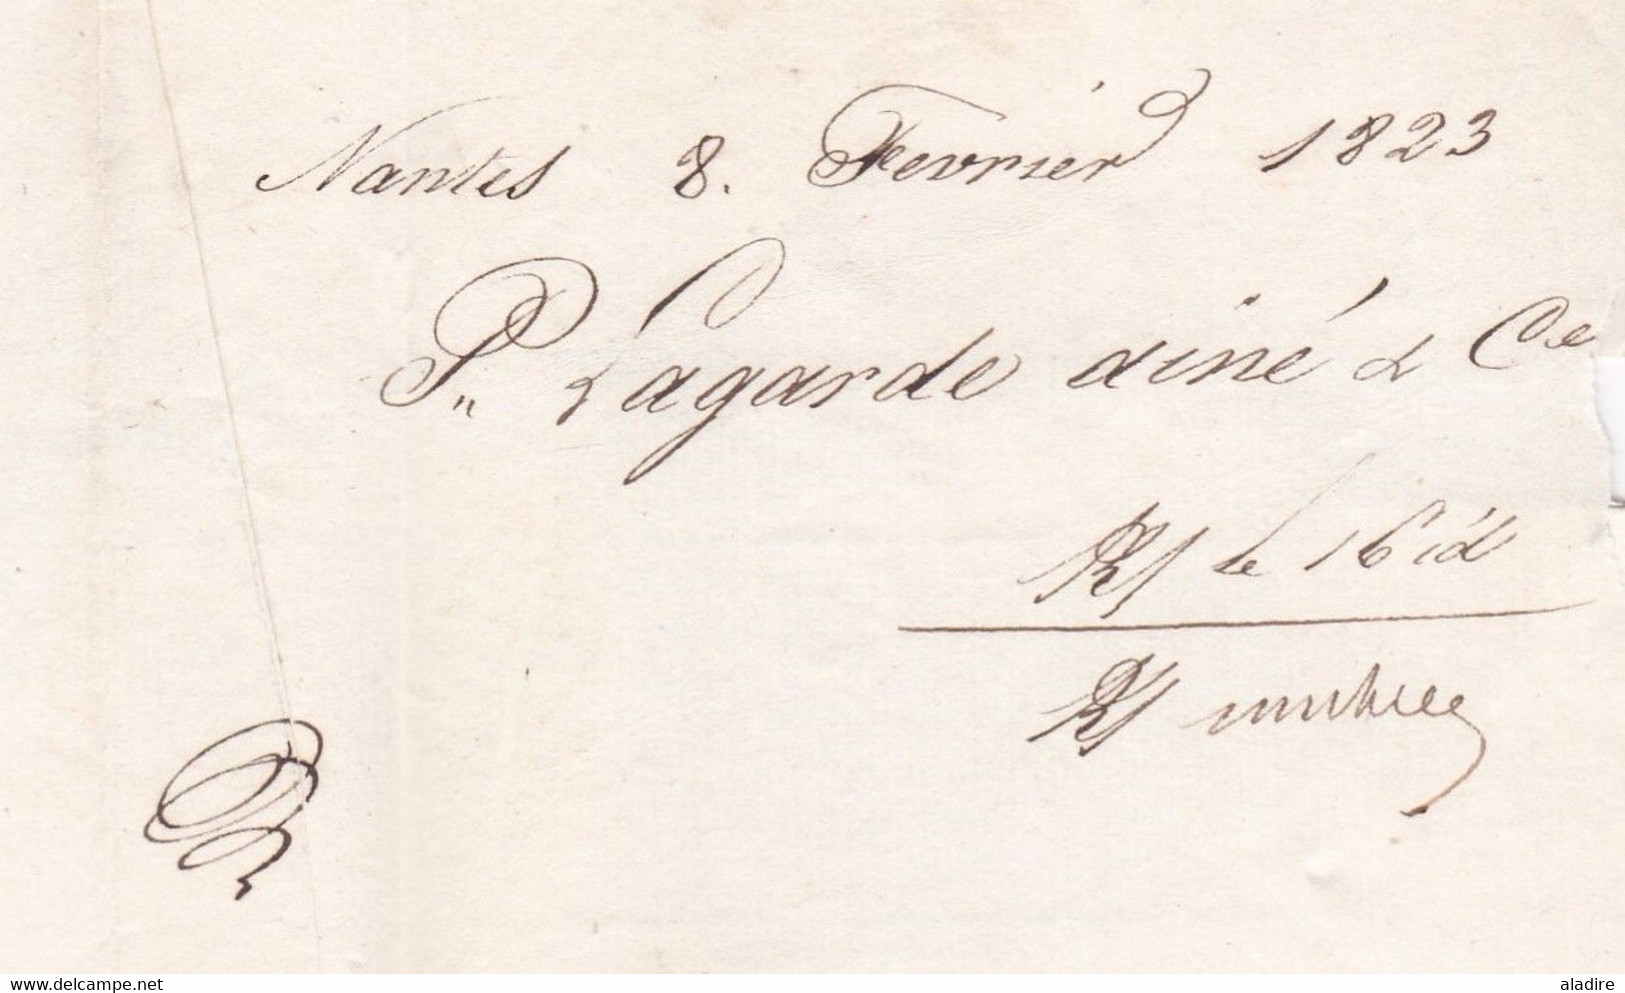 Nantes 8. Fevrier 1823
P. Lagarde ainé & Ce
R/ le 16 id
R/
delcampe.net
aladire